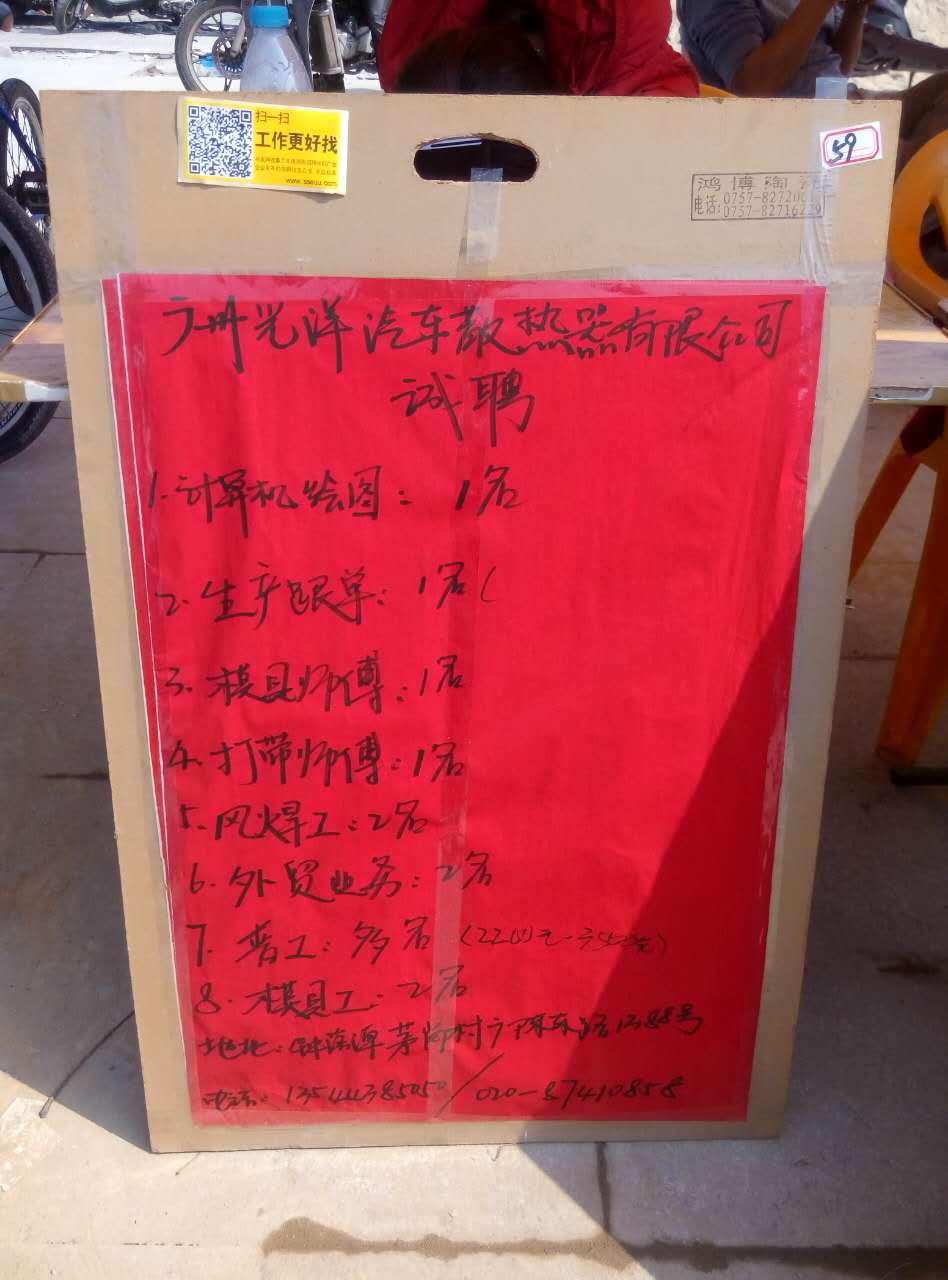 扫一扫
工作更好找
59
鸿博陶瓷
电话:0757-82720
0757-82716229
广州光洋汽车散热器有限公司
诚聘
1.计算机绘图:1名
2.生产跟单:1名(
3.模具师傅:1名
4.打带师傅:1名
5.风焊工:2名
6.外贸业务:2名
7.普工:多名(2200元-3500元)
8.模具工:2名
地址:钟落潭茅岗村广陈东路1388号
电话:13544385050/020-87410858